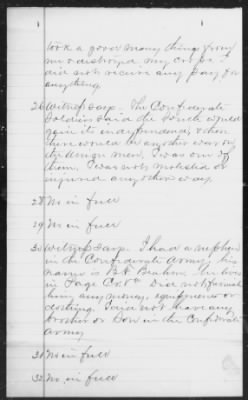 took a good many things from
me & destroyed my crops. I
did not receive any pay for
anything
26 Witness says. The Confederate
Soldiers said the South would
gain its independence, & then
there would be another war on
the Union men, I was one of
them. I was not molested or
injured any other way.
28 No in full
29 No in full
30 Witness says. I had a nephew
in the Confederate Army, his
name is B.F. he lives
in Page Co. Va. Did not furnish
him any money, equipments or
clothing. I did not have any
brother or Son in the Confederate
Army
31 No in full
32 No, in full